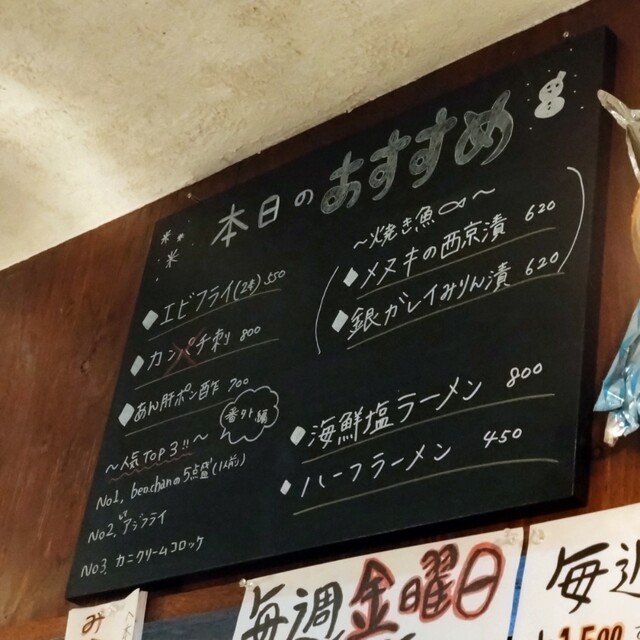 本日の おすすめ
エビフライ(2本) 550
カンパチ刺 800
あん肝ポン酢 700
番外編
〜人気TOP3!!〜
No1. benchanの5点盛(1人前)
No2. アジフライ
No3. カニクリームコロッケ
〜焼き魚〜
メヌキの西京漬 620
銀ガレイみりん漬 620
海鮮塩ラーメン 800
ハーフラーメン 450
み
毎週金曜日
毎週
1,500